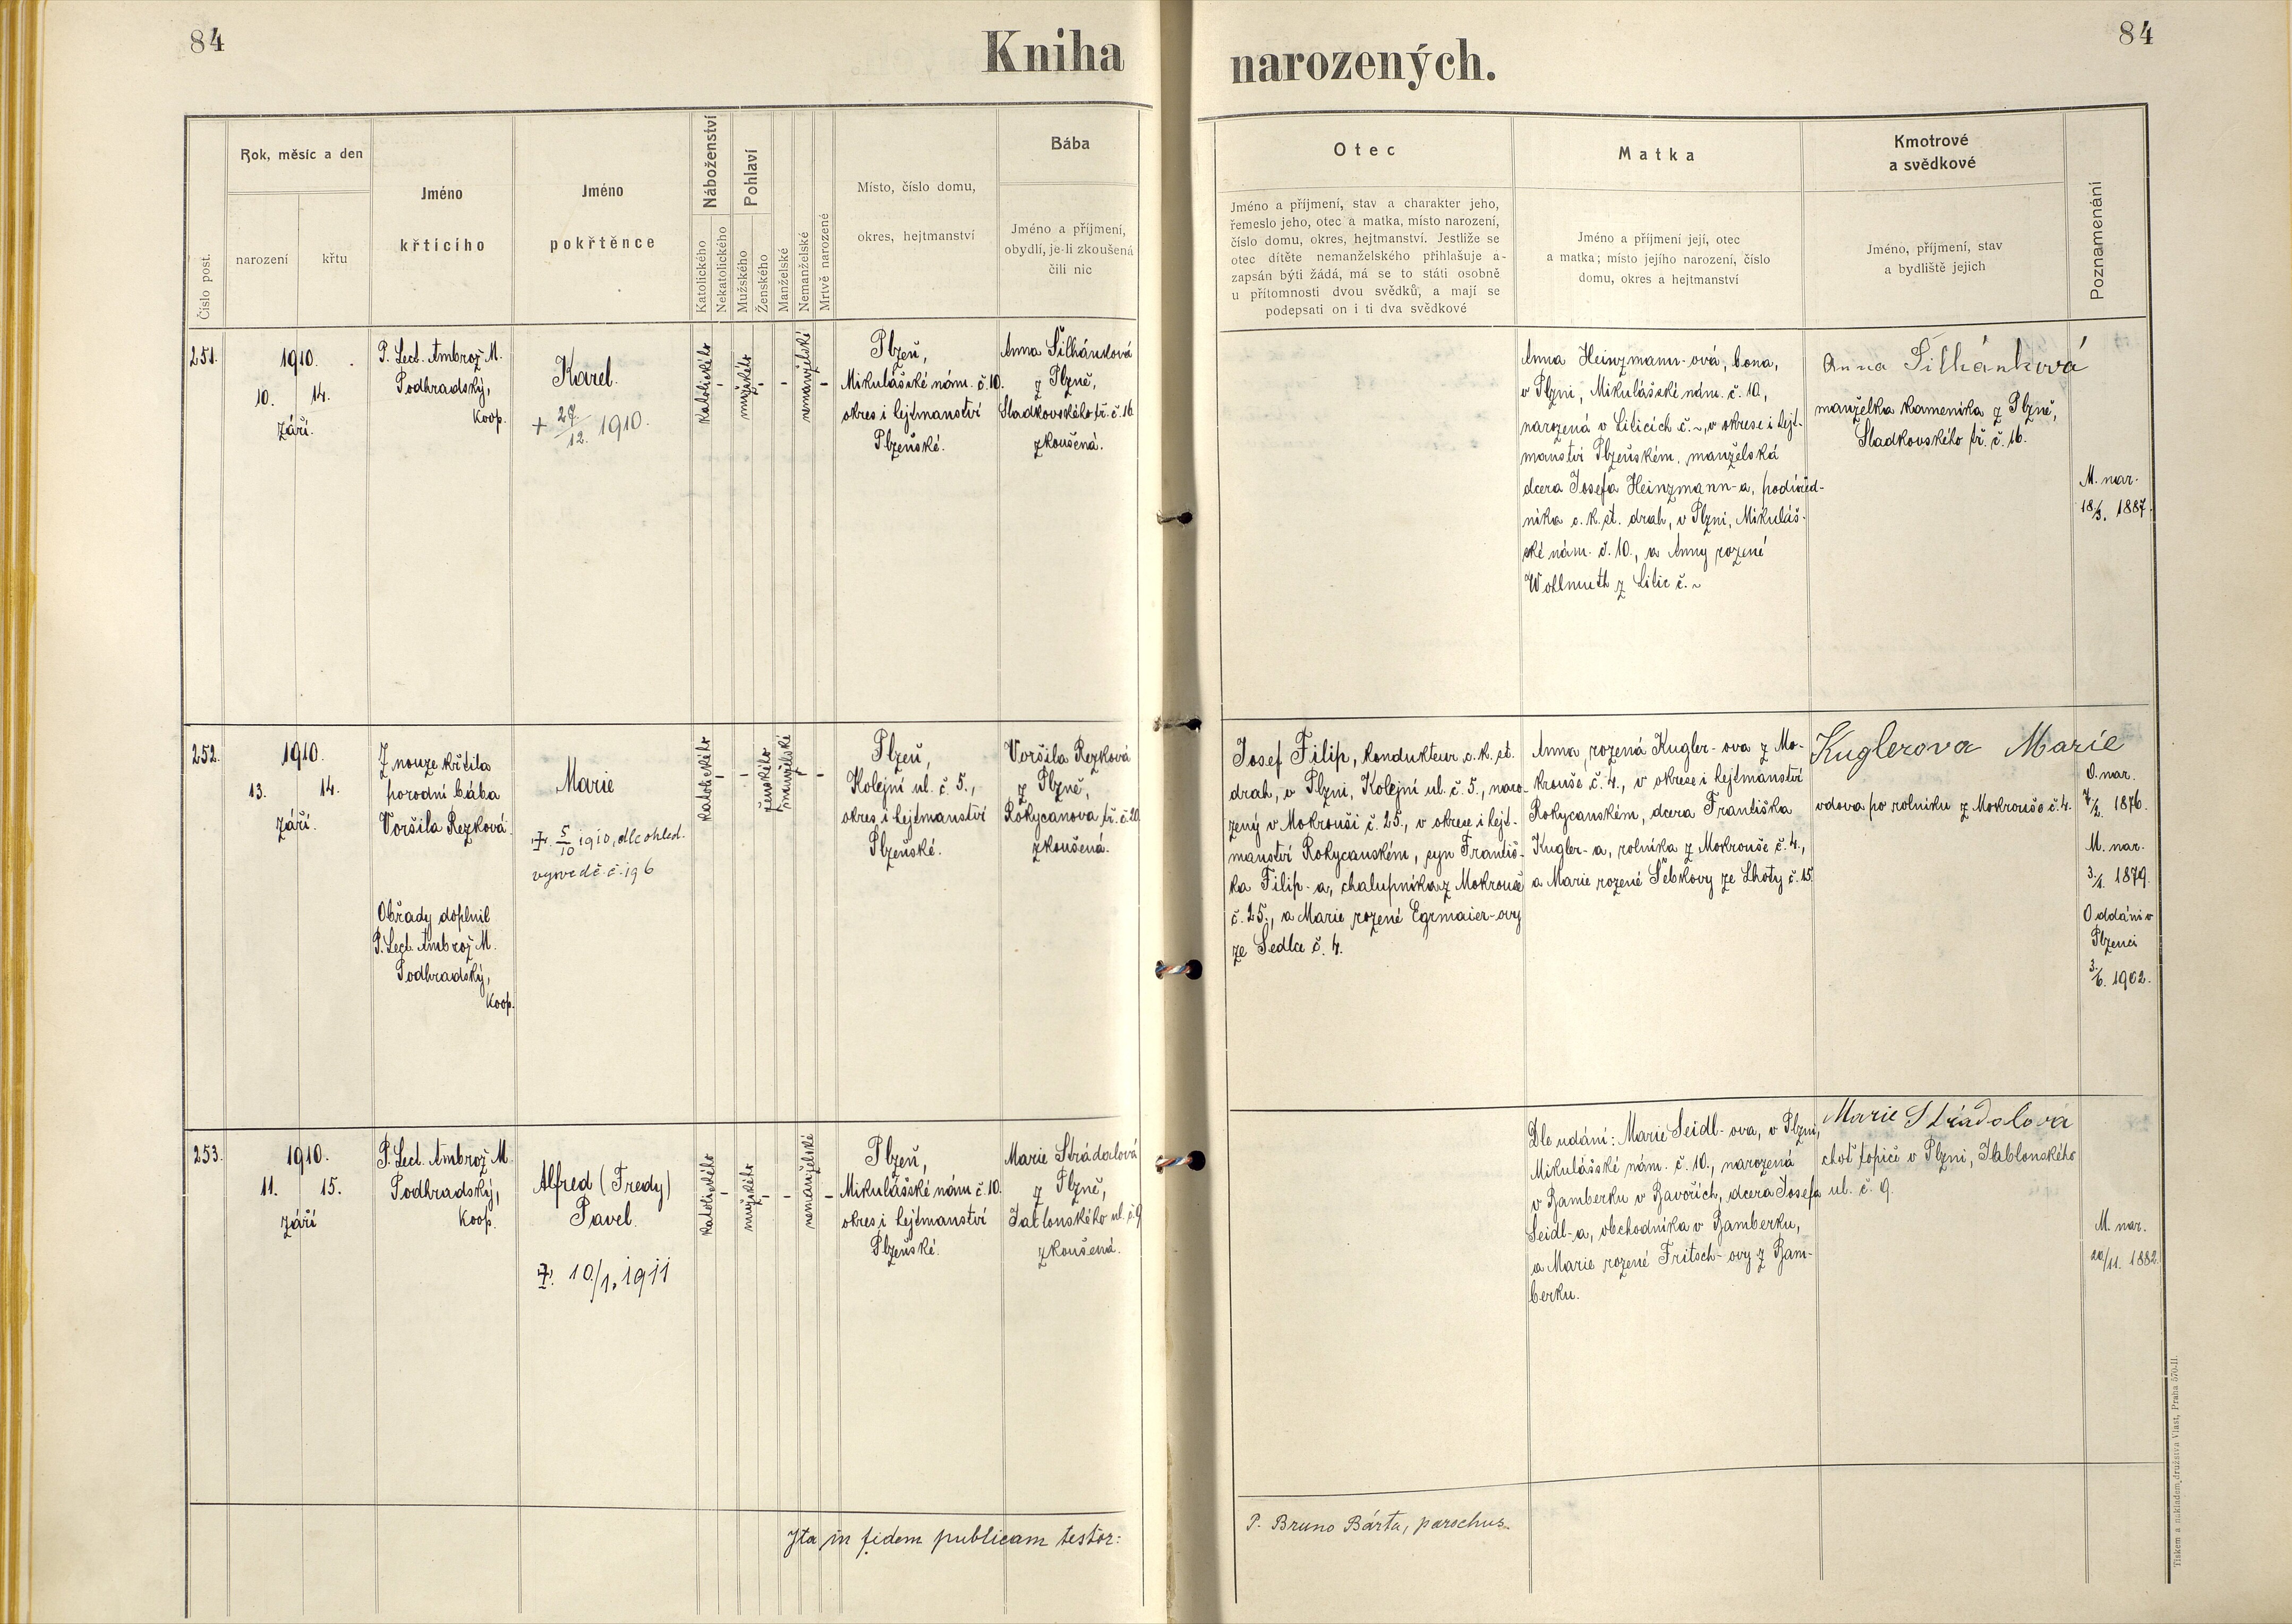 84
Kniha
narozených.
84
Číslo post.
Rok, měsíc a den
narození
křtu
Jméno
křticího
Jméno
pokřtěnce
Náboženství
Katolického
Nekatolického
Pohlaví
Mužského
Ženského
Manželské
Nemanželské
Mrtvě narozené
Místo, číslo domu,
okres, hejtmanství
Bába
Jméno a příjmení,
obydlí, je-li zkoušená
čili nic
Otec
Jméno a příjmení, stav a charakter jeho,
řemeslo jeho, otec a matka, místo narození,
číslo domu, okres, hejtmanství. Jestliže se
otec dítěte nemanželského přihlašuje a-
zapsán býti žádá, má se to státi osobně
u přítomnosti dvou svědků, a mají se
podepsati on i ti dva svědkové
Matka
Jméno a příjmení její, otec
a matka; místo jejího narození, číslo
domu, okres a hejtmanství
Kmotrové
a svědkové
Jméno, příjmení, stav
a bydliště jejich
Poznamenání
251.
1910.
10. 14.
září.
P. Lect. Ambrož M.
Podhradský,
Koop.
Karel.
+ 27/12. 1910.
Katolického
-
mužského
-
-
nemanželské
-
Plzeň,
Mikulášské nám. č. 10.
okres i hejtmanství
Plzeňské.
Anna Šilhánková
z Plzně,
Sladkovského tř. č. 16.
zkoušená.
Anna Heinzmann-ová, bona,
v Plzni, Mikulášské nám. č. 10,
narozená v Liticích č. ~, v okrese i hejt-
manství Plzeňském, manželská
dcera Josefa Heinzmann-a, podúřed-
níka c. k. st. drah, v Plzni, Mikuláš-
ské nám. č. 10., a Anny rozené
Wohlmuth z Litic č. ~
Anna Šilhánková
manželka kameníka z Plzně,
Sladkovského tř. č. 16.
M. nar.
18/3. 1887.
252.
1910.
13. 14.
září.
Z nouze křtila
porodní bába
Voršila Rezková.
Obřady doplnil
P. Lect. Ambrož M.
Podhradský,
Koop.
Marie
+. 5/10 1910, dle ohled.
vysvědč. č. 196
Katolického
-
-
ženského
manželské
-
-
Plzeň,
Kolejní ul. č. 5.,
okres i hejtmanství
Plzeňské.
Voršila Rezková
z Plzně,
Rokycanova tř. č. 20.
zkoušená.
Josef Filip, kondukteur c. k. st.
drah, v Plzni, Kolejní ul. č. 5., naro-
zený v Mokrouši č. 25., v okrese i hejt-
manství Rokycanském, syn Františ-
ka Filip-a, chalupníka z Mokrouše
č. 25., a Marie rozené Egrmaier-ovy
ze Sedla č. 4.
Anna, rozená Kugler-ova z Mo-
krouše č. 4., v okrese i hejtmanství
Rokycanském, dcera Františka
Kugler-a, rolníka z Mokrouše č. 4.,
a Marie rozené Šebkovy ze Lhoty č. 15.
Kuglerova Marie
vdova po rolníku z Mokrouše č. 4.
O. nar.
7/2. 1876.
M. nar.
3./1. 1879.
Oddáni v
Plzenci
3./6. 1902.
253.
1910.
11. 15.
září
P. Lect. Ambrož M.
Podhradský,
Koop.
Alfred (Fredy)
Pavel.
+. 10./1. 1911
Katolického
-
mužského
-
-
nemanželské
-
Plzeň,
Mikulášské nám č. 10.
okres i hejtmanství
Plzeňské.
Marie Strádalová
z Plzně,
Jablonského ul. č. 9
zkoušená.
Dle udání: Marie Seidl-ova, v Plzni,
Mikulášské nám. č. 10., narozená
v Bamberku v Bavořích, dcera Josefa
Seidl-a, obchodníka v Bamberku,
a Marie rozené Fritsch-ovy z Bam-
berku.
Marie Strádalová
choť topiče v Plzni, Jablonského
ul. č. 9.
M. nar.
20/11. 1882.
Ita in fidem publicam testor:
P. Bruno Bárta, parochus.
Tiskem a nákladem družstva Vlast, Praha 570-II.